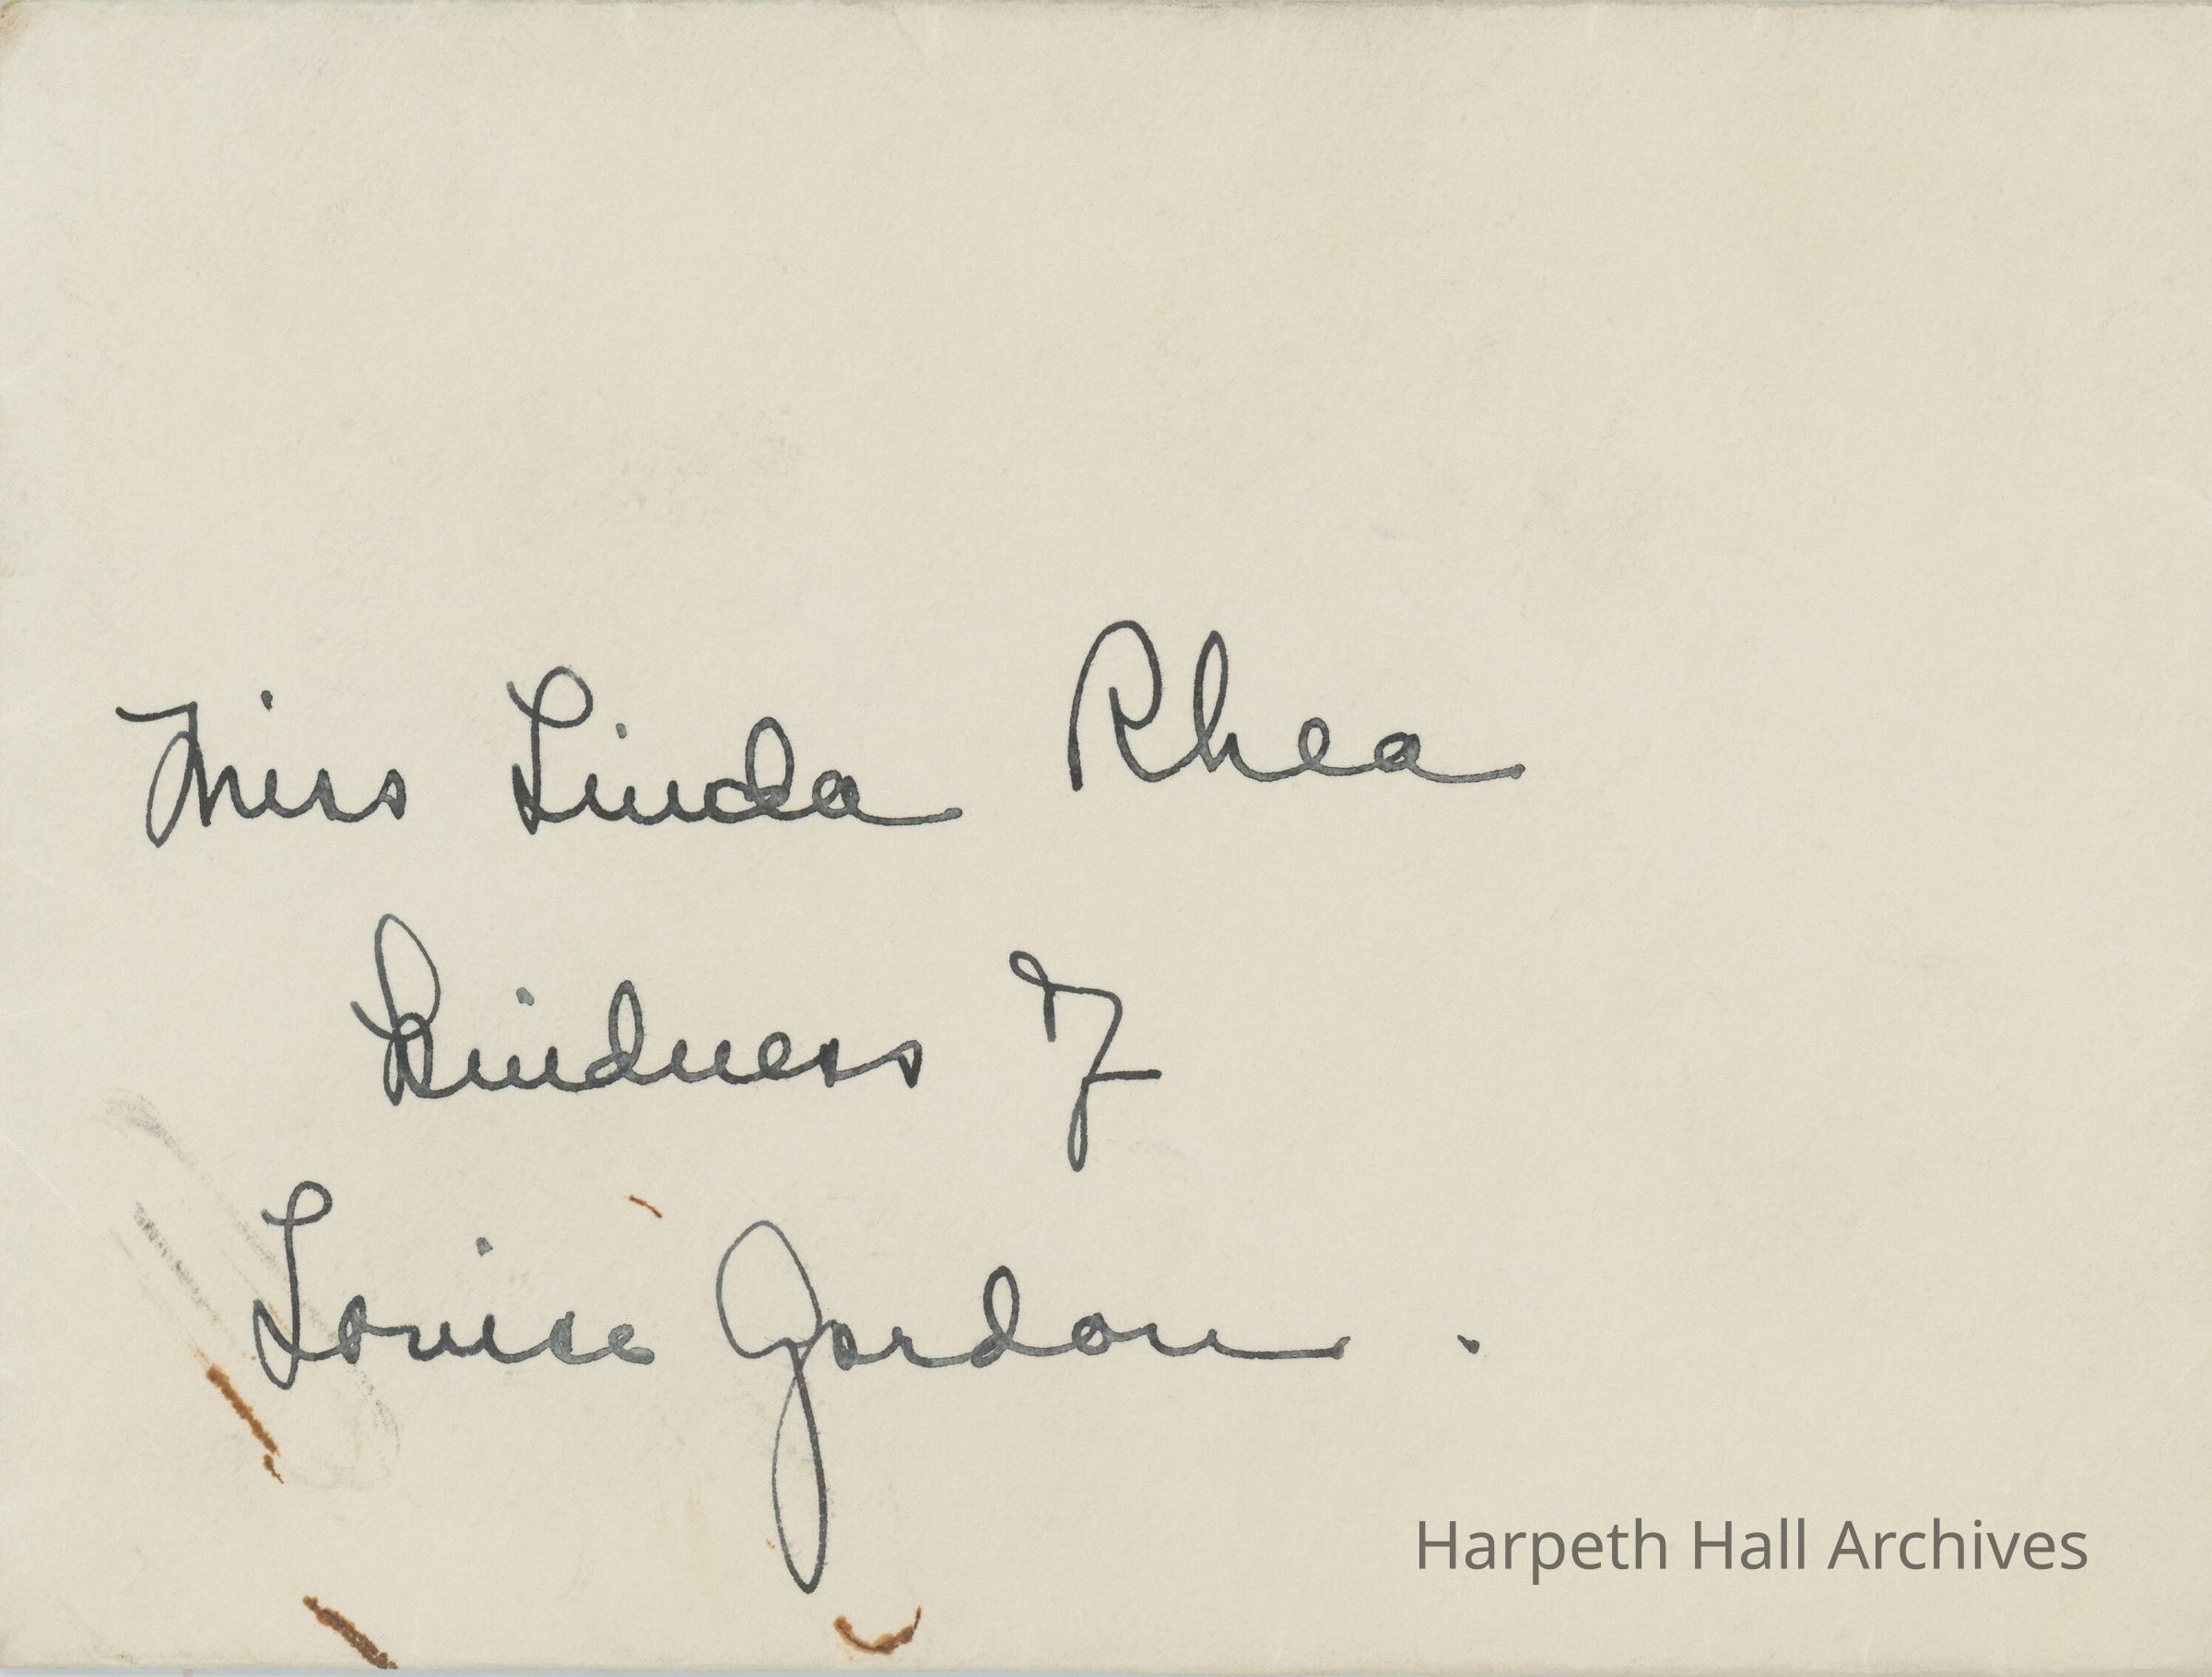 Miss Linda Rhea
Kindness of
Louise Gordon.
Harpeth Hall Archives